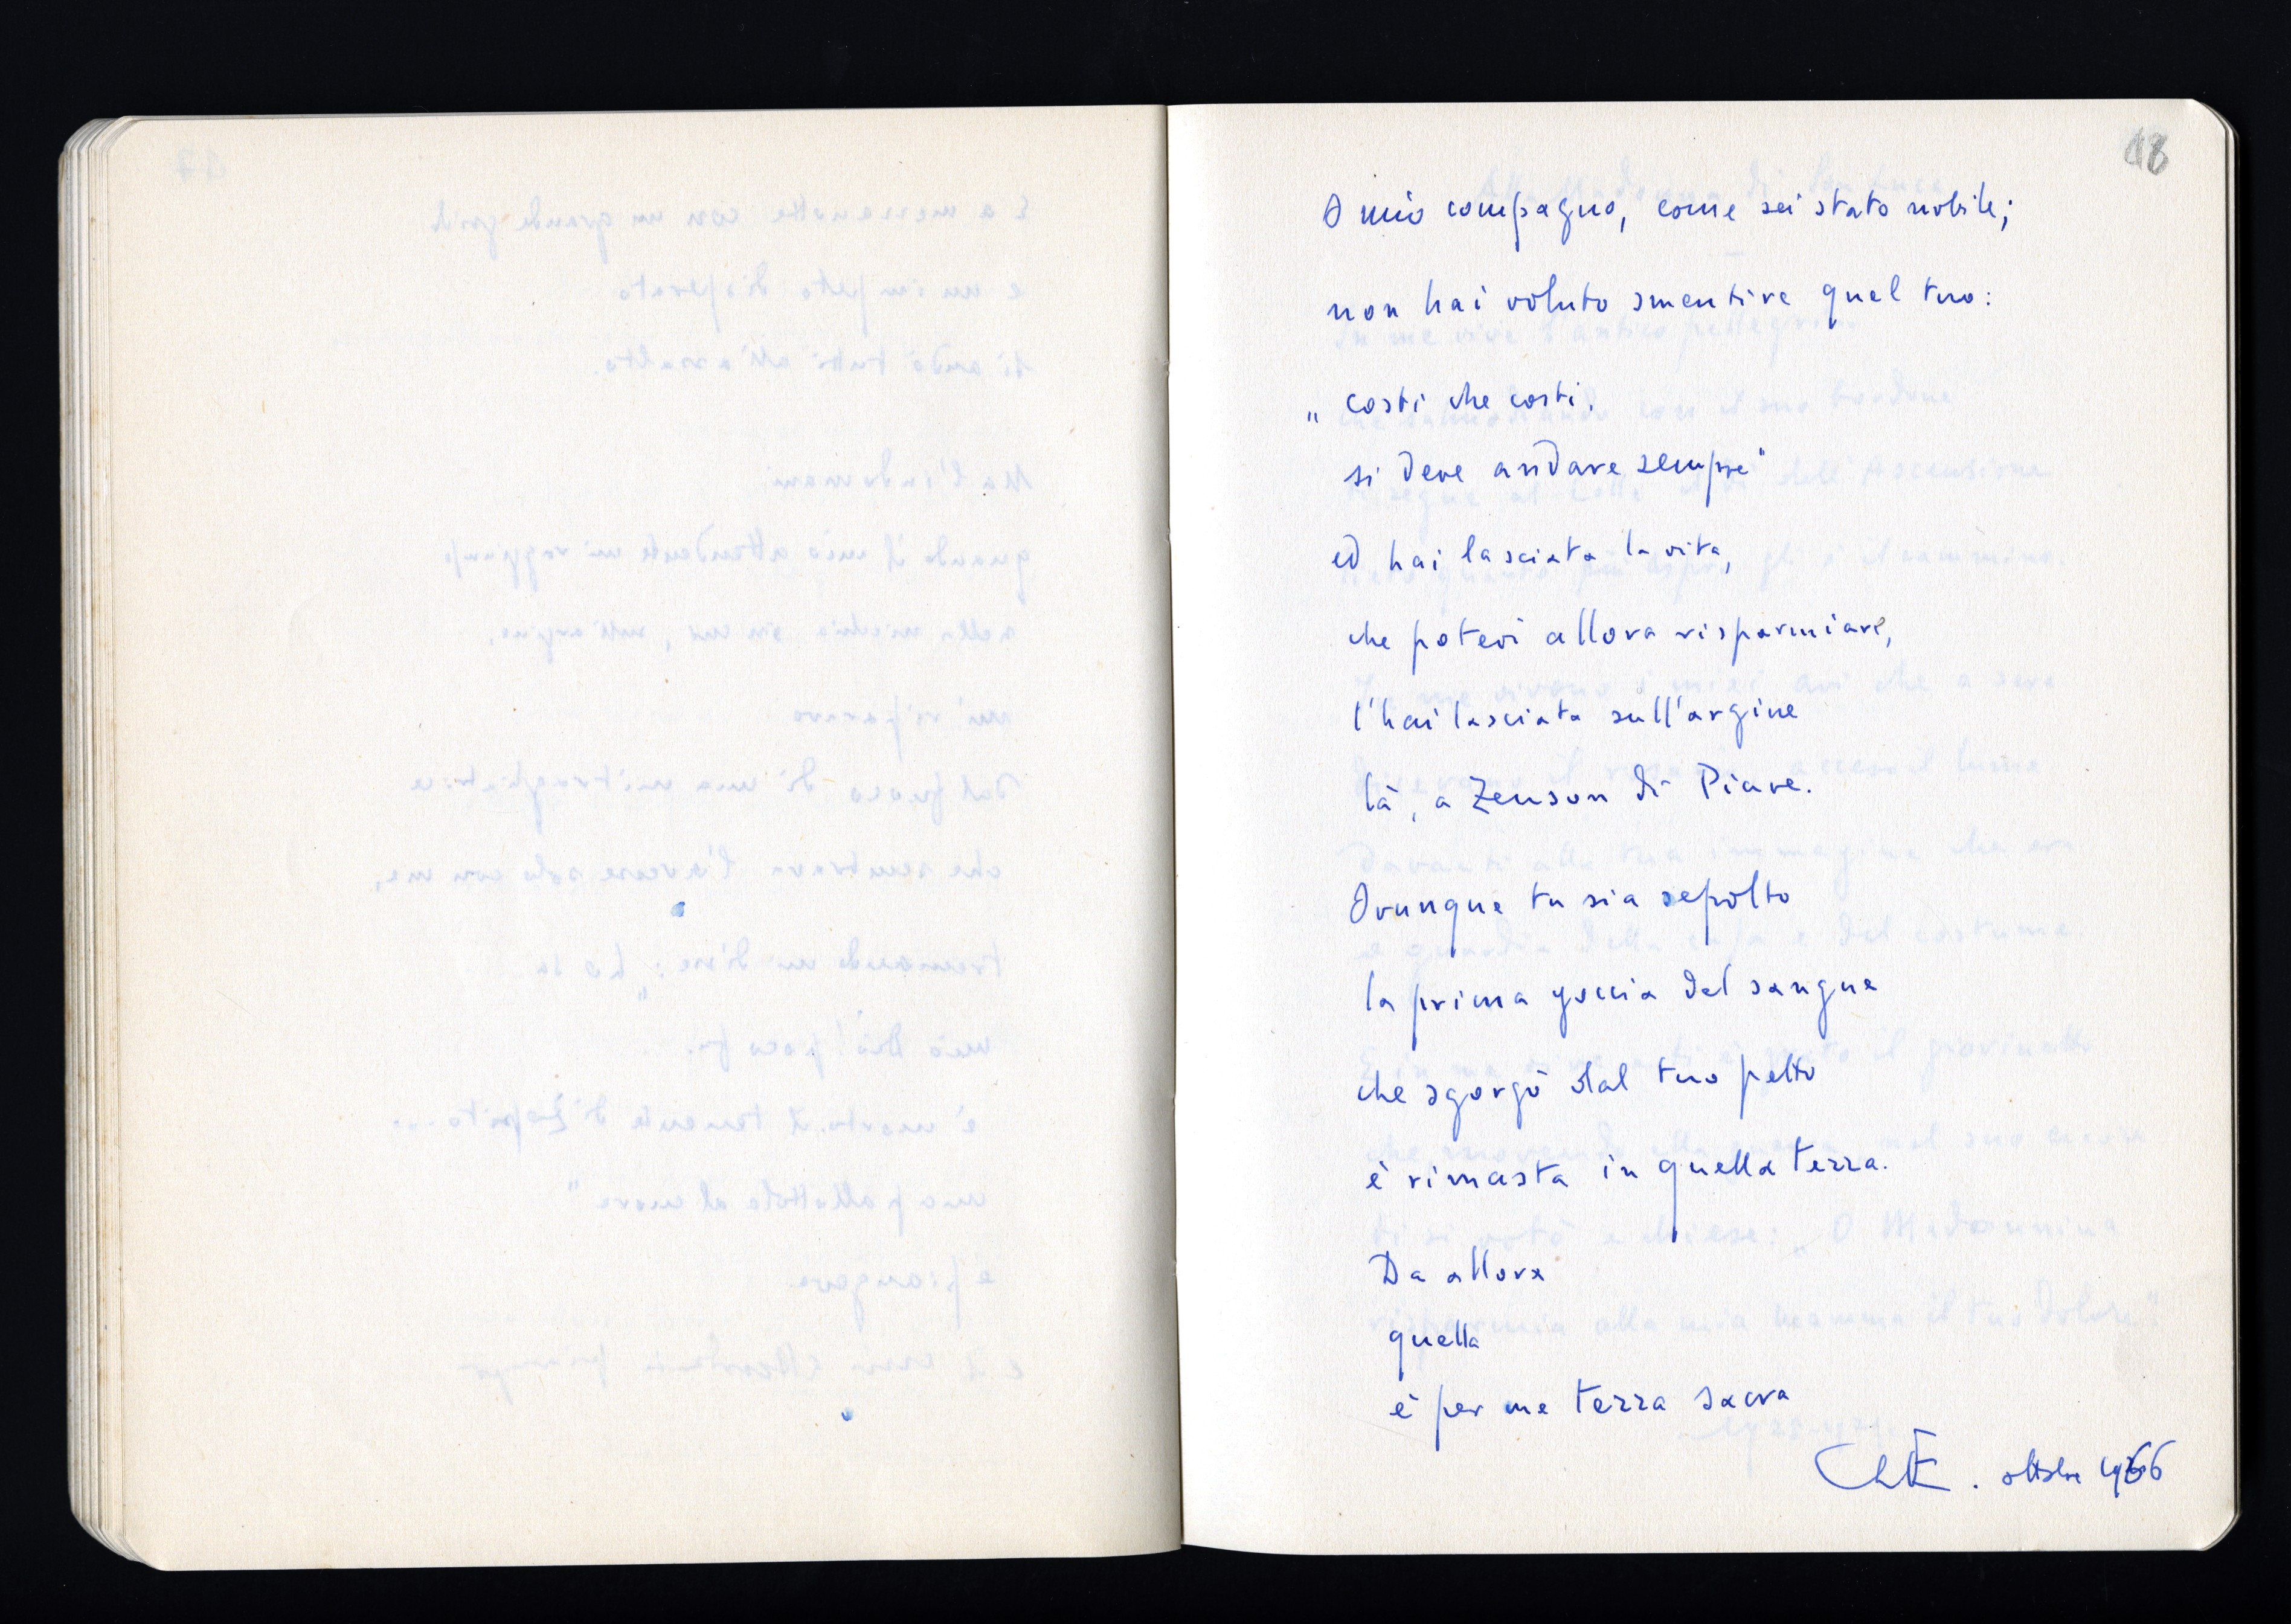 18
O mio compagno, come sei stato nobile;
non hai voluto smentire quel tuo:
„ costi che costi,
si deve andare sempre"
ed hai lasciata la vita,
che potevi allora risparmiare,
l'hai lasciata sull'argine
là, a Zenson di Piave.
Ovunque tu sia sepolto
la prima goccia del sangue
che sgorgò dal tuo petto
è rimasta in quella terra.
Da allora
quella
è per me terra sacra
ottobre 1966